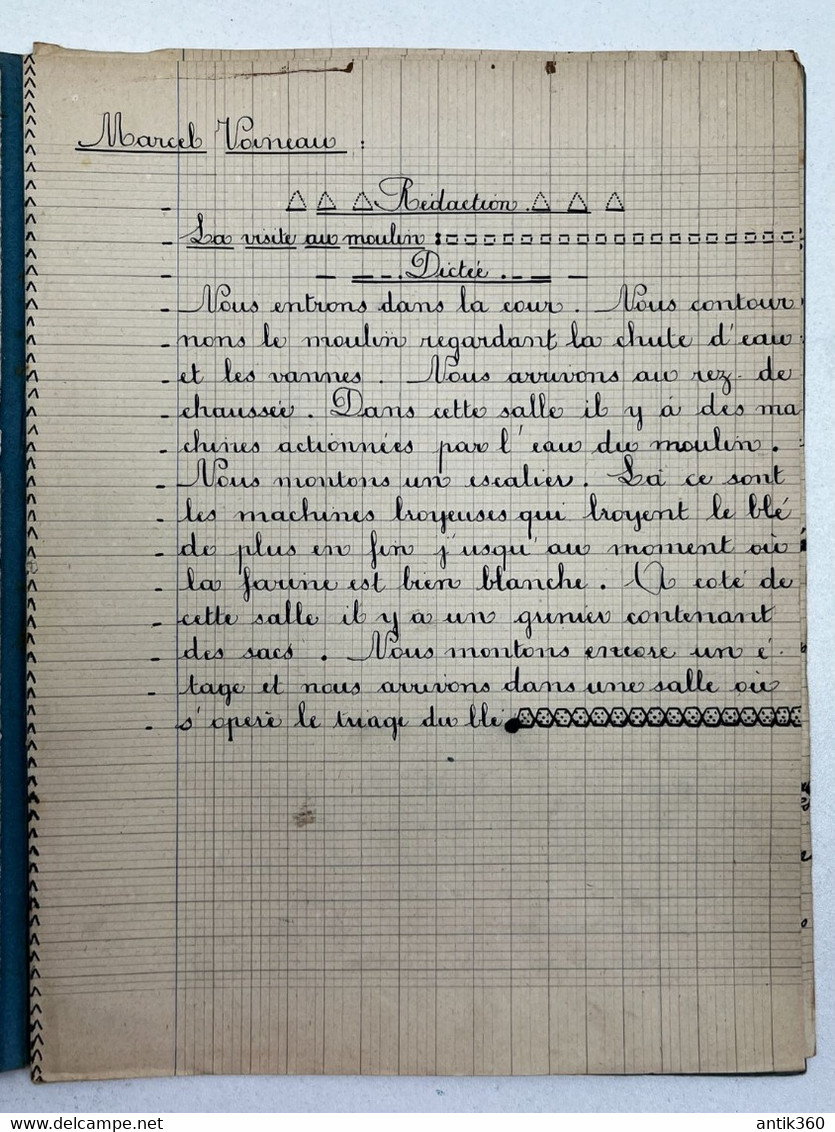 Marcel Voineau :
Rédaction.
La visite au moulin :
Dictée.
- Nous entrons dans la cour. Nous contour
- nons le moulin regardant la chute d'eau
- et les vannes. Nous arrivons au rez-de
- chaussée. Dans cette salle il y à des ma
- chines actionnées par l'eau du moulin.
- Nous montons un escalier. Là ce sont
- les machines broyeuses qui broyent le blé
- de plus en fin j'usqu'au moment où
- la farine est bien blanche. A coté de
- cette salle il y a un grenier contenant
- des sacs. Nous montons encore un é-
- tage et nous arrivons dans une salle où
- s'opère le triage du blé
www.delcampe.net
antik360